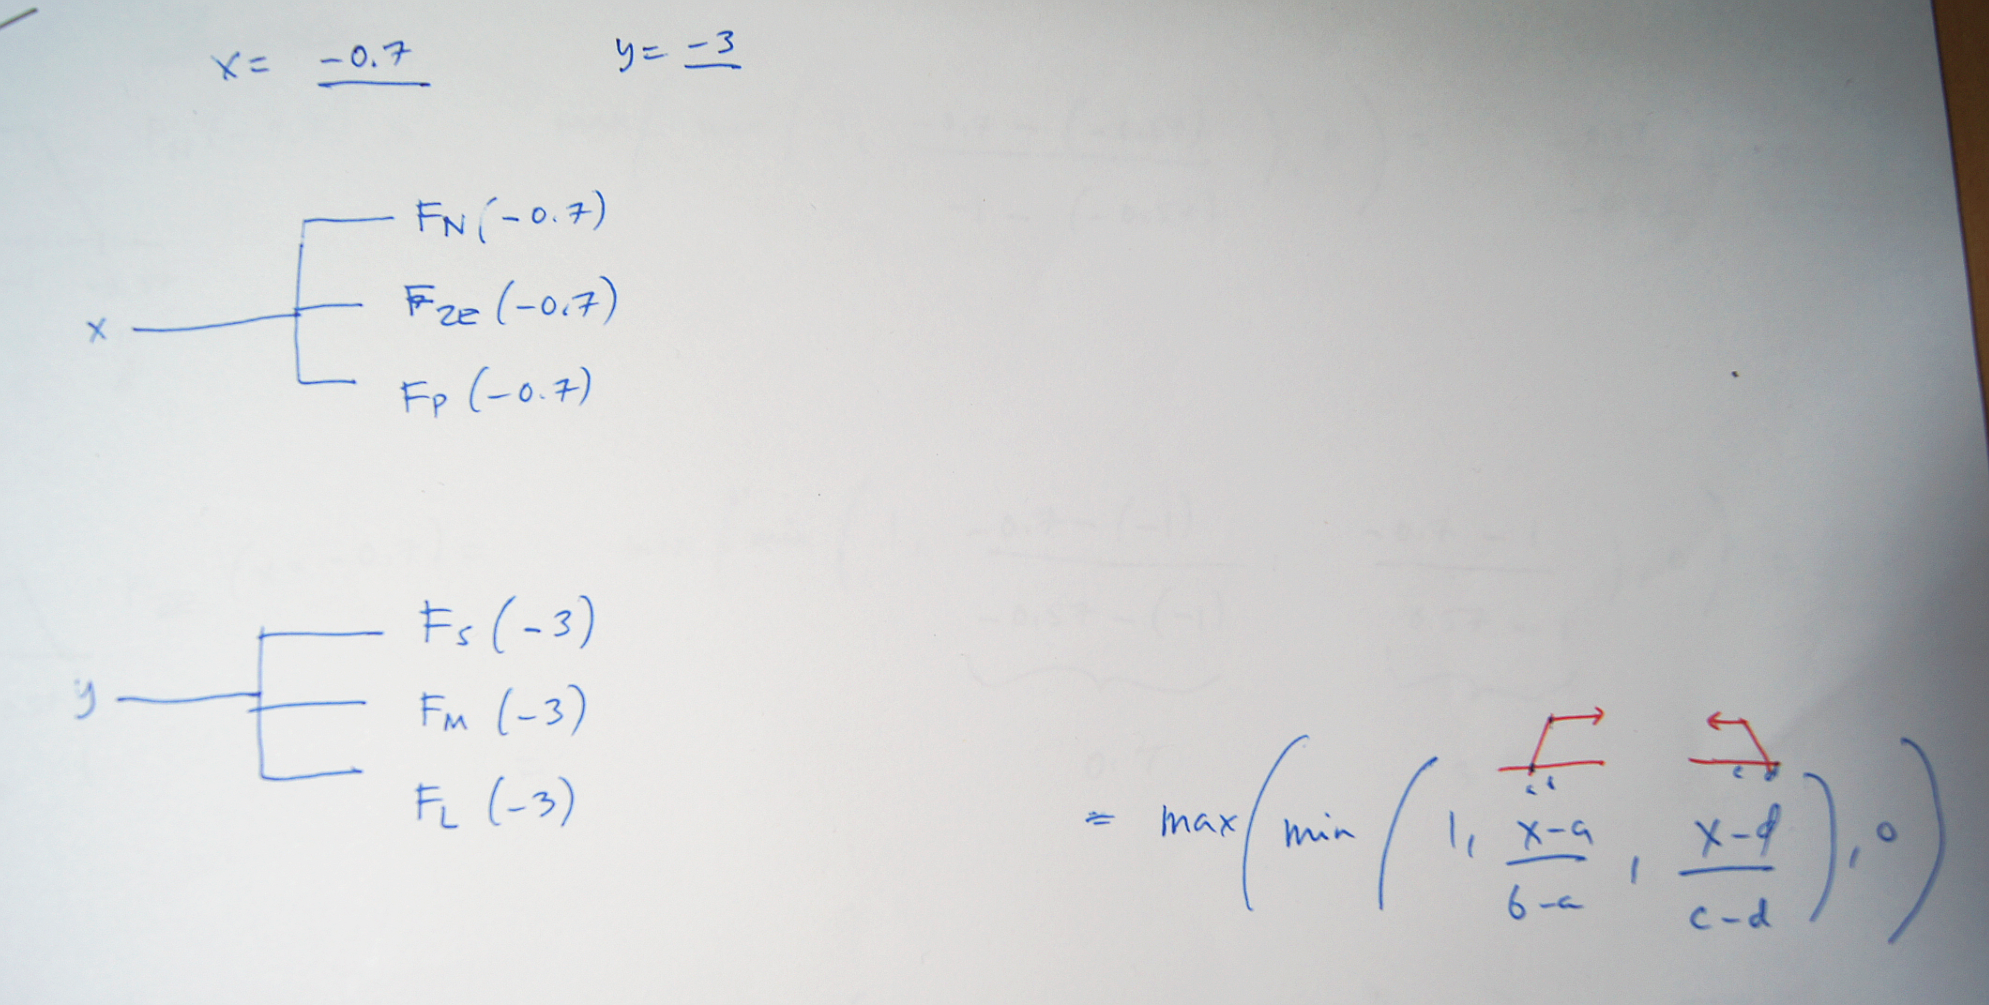 x = -0.7 y = -3
F_N (-0.7)
F_ze (-0.7)
x
F_P (-0.7)
F_S (-3)
y
F_M (-3)
F_L (-3)
= max ( min ( 1, x-a / b-a , x-d / c-d ) , 0 )